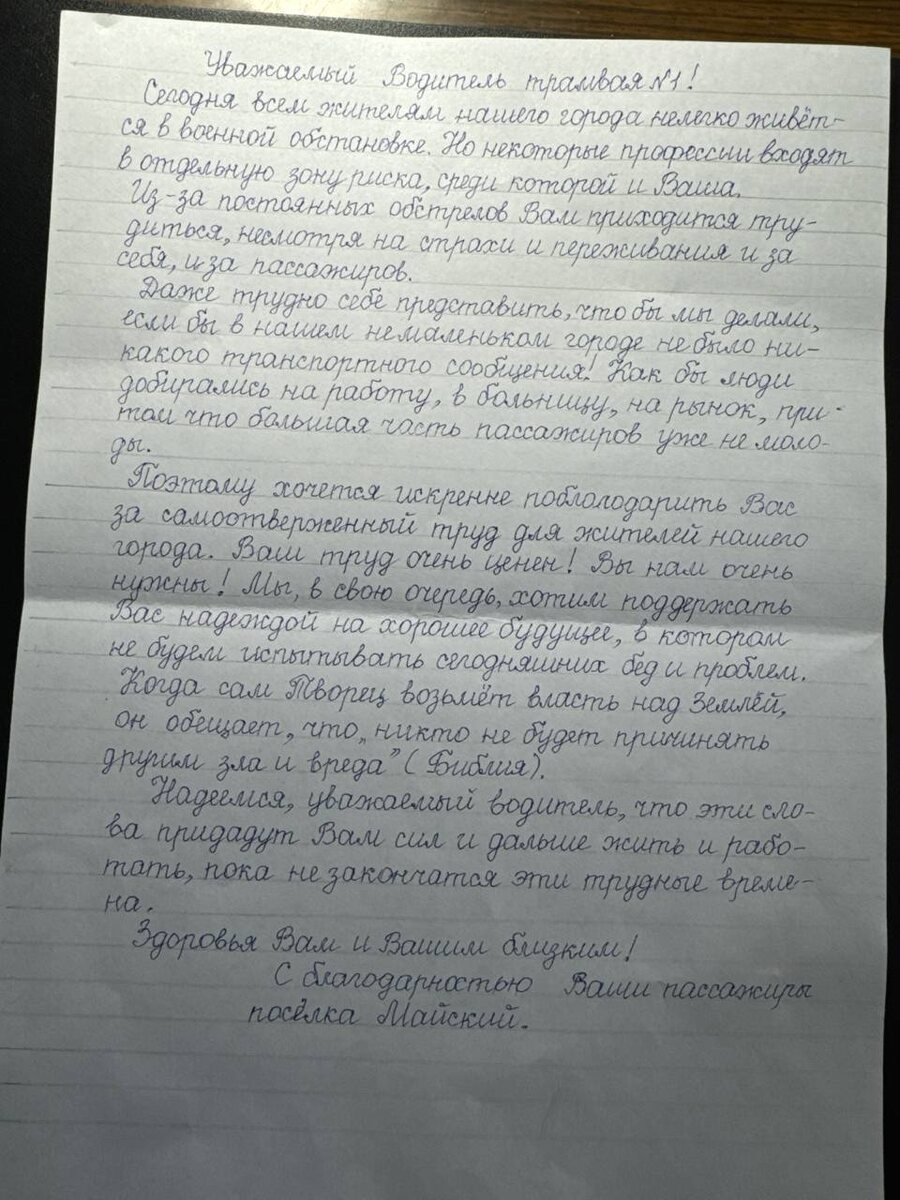 Уважаемый Водитель трамвая №1!
Сегодня всем жителям нашего города нелегко живёт-
ся в военной обстановке. Но некоторые профессии входят
в отдельную зону риска, среди которой и Ваша.
Из-за постоянных обстрелов Вам приходится тру-
диться, несмотря на страхи и переживания и за
себя, и за пассажиров.
Даже трудно себе представить, что бы мы делали,
если бы в нашем немаленьком городе не было ни-
какого транспортного сообщения! Как бы люди
добирались на работу, в больницу, на рынок, при-
том что большая часть пассажиров уже не моло-
ды.
Поэтому хочется искренне поблолодарить Вас
за самоотверженный труд для жителей нашего
города. Ваш труд очень ценен! Вы нам очень
нужны! Мы, в свою очередь, хотим поддержать
Вас надеждой на хорошее будущее, в котором
не будем испытывать сегодняшних бед и проблем.
Когда сам Творец возьмёт власть над Землёй,
он обещает, что „никто не будет причинять
другим зла и вреда” (Библия).
Надеемся, уважаемый водитель, что эти сло-
ва придадут Вам сил и дальше жить и рабо-
тать, пока не закончатся эти трудные време-
на.
Здоровья Вам и Вашим близким!
С благодарностью Ваши пассажиры
посёлка Майский.